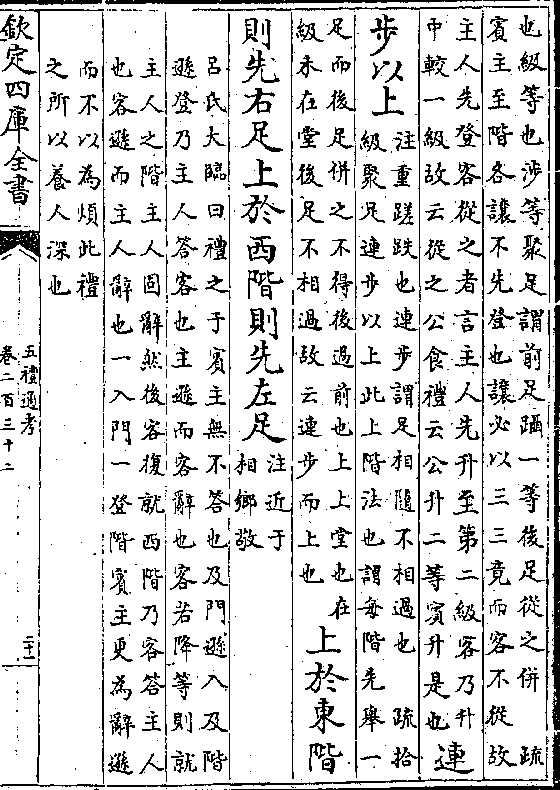 也級等也涉等聚足謂前足躡一等後足從之併　疏
賓主至階各讓不先登也讓必以三三竟而客不從故
主人先登客從之者言主人先升至第二級客乃升
中較一級故云從之公食禮云公升二等賓升是也
連
步以上
注重蹉跌也連步謂足相隨不相過也　疏拾
級聚足連步以上此上階法也謂每階先舉一
足而後足併之不得後過前也上上堂也在
級未在堂後足不相過故云連步而上也
上於東階
則先右足上於西階則先左足
注近于
相鄉敬
呂氏大臨曰禮之于賓主無不答也及門遜入及階
遜登乃主人答客也主遜而客辭也客若降等則就
主人之階主人固辭然後客復就西階乃客答主人
也客遜而主人辭也一入門一登階賓主更為辭遜
而不以為煩此禮
之所以養人深也
欽定四庫全書
五禮通考
卷二百三十二
二十一